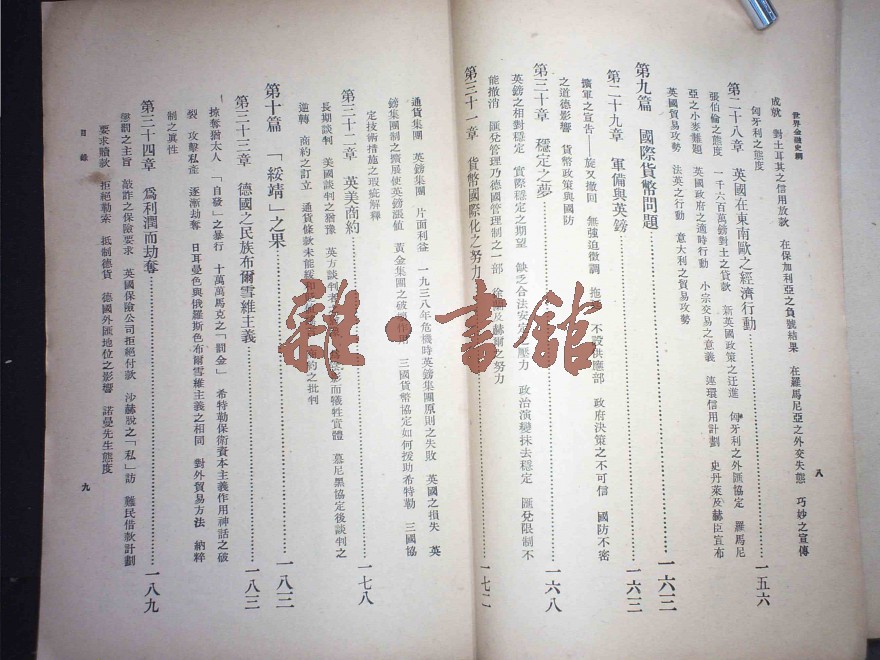 世界金融史綱
八
成就　對土耳其之信用放款　在保加利亞之負號結果　在羅馬尼亞之外交失態　巧妙之宣傳
匈牙利之態度
第二十八章　英國在東南歐之經濟行動…………一五六
張伯倫之態度　一千六百萬鎊對土之貸款　新英國政策之迂進　匈牙利之外匯協定　羅馬尼
亞之小麥難題　英國政府之適時行動　小宗交易之意義　連環信用計劃　史丹萊及赫臣宣布
英國貿易攻勢　法英之行動　意大利之貿易攻勢
第九篇　國際貨幣問題…………一六三
第二十九章　軍備與英鎊…………一六三
擴軍之宣告——旋又撤回　無強迫徵調　拖　不設供應部　政府決策之不可信　國防不密
之道德影響　貨幣政策與國防
第三十章　穩定之夢…………一六八
英鎊之相對穩定　實際穩定之期望　缺乏合法安定　壓力　政治演變抹去穩定　匯兌限制不
能撤消　匯兌管理乃德國管理制之一部　及赫爾之努力
第三十一章　貨幣國際化之努力…………一七二
通貨集團　英鎊集團　片面利益　一九三八年危機時英鎊集團原則之失敗　英國之損失　英
鎊集團制之擴展使英鎊漲值　黃金集團之破　作用　三國貨幣協定如何援助希特勒　三國協
定技術措施之瑕疵解釋
第三十二章　英美商約…………一七八
長期談判　美國談判之猶豫　英方談判者　影而犧牲實體　慕尼黑協定後談判之
逆轉　商約之訂立　通貨條款未能緩和　約之批判
第十篇　「綏靖」之果…………一八三
第三十三章　德國之民族布爾雪維主義…………一八三
掠奪猶太人　「自發」之暴行　十萬萬馬克之「罰金」　希特勒保衛資本主義作用神話之破
裂　攻擊私產　逐漸劫奪　日耳曼色與俄羅斯色布爾雪維主義之相同　對外貿易方法　納粹
制之眞性
第三十四章　爲利潤而劫奪…………一八九
懲罰之主旨　敲詐之保險要求　英國保險公司拒絕付款　沙赫脫之「私」訪　難民借款計劃
要求贖款　拒絕勒索　抵制德貨　德國外匯地位之影響　諾曼先生態度
目錄
九
雜·書館